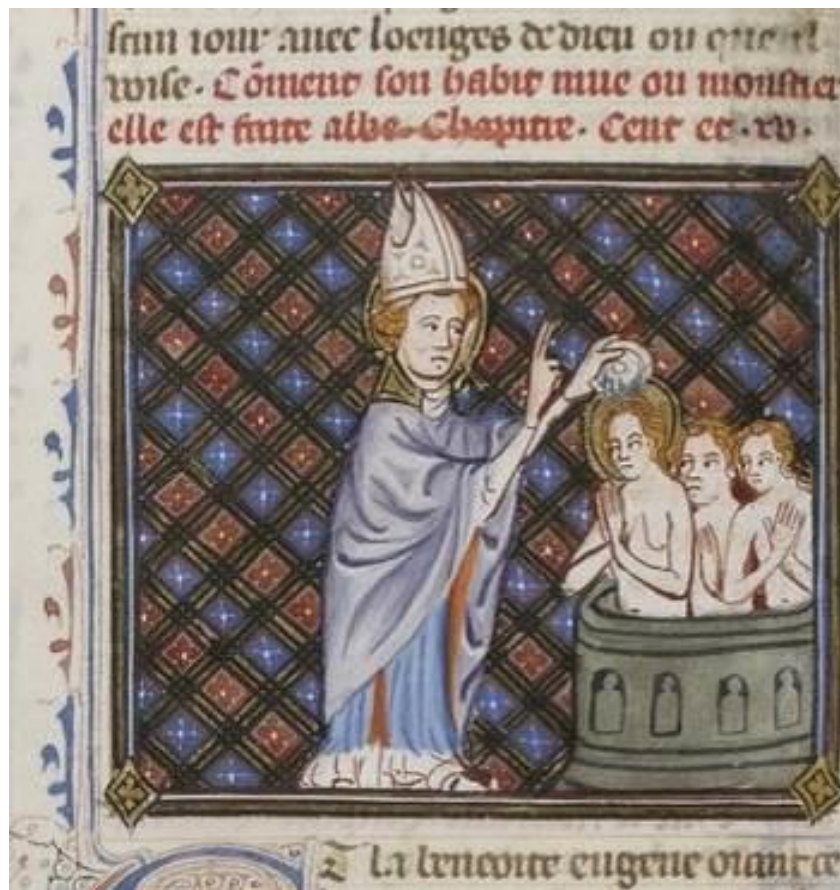 saim iour auec loenges de dieu ou
wise. Cõment son habit mue ou monstier
elle est faite albe. Chapitre. Cent et .xv.
Et la benoite eugene oiant ce